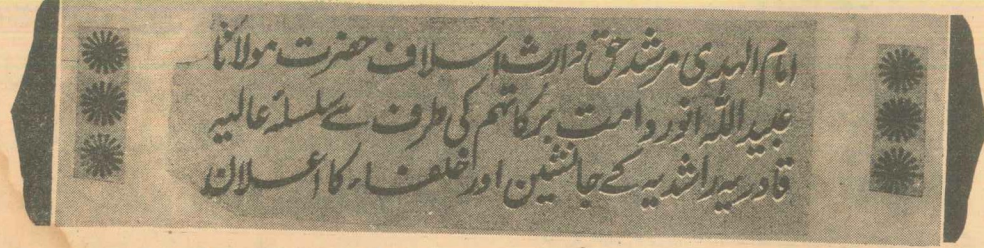 امام الہدیٰ مرشد حق وارث اسلاف حضرت مولانا
عبیداللہ انور دامت برکاتہم کی طرف سے سلسلۂ عالیہ
قادریہ راشدیہ کے جانشین اور خلفاء کا اعلان